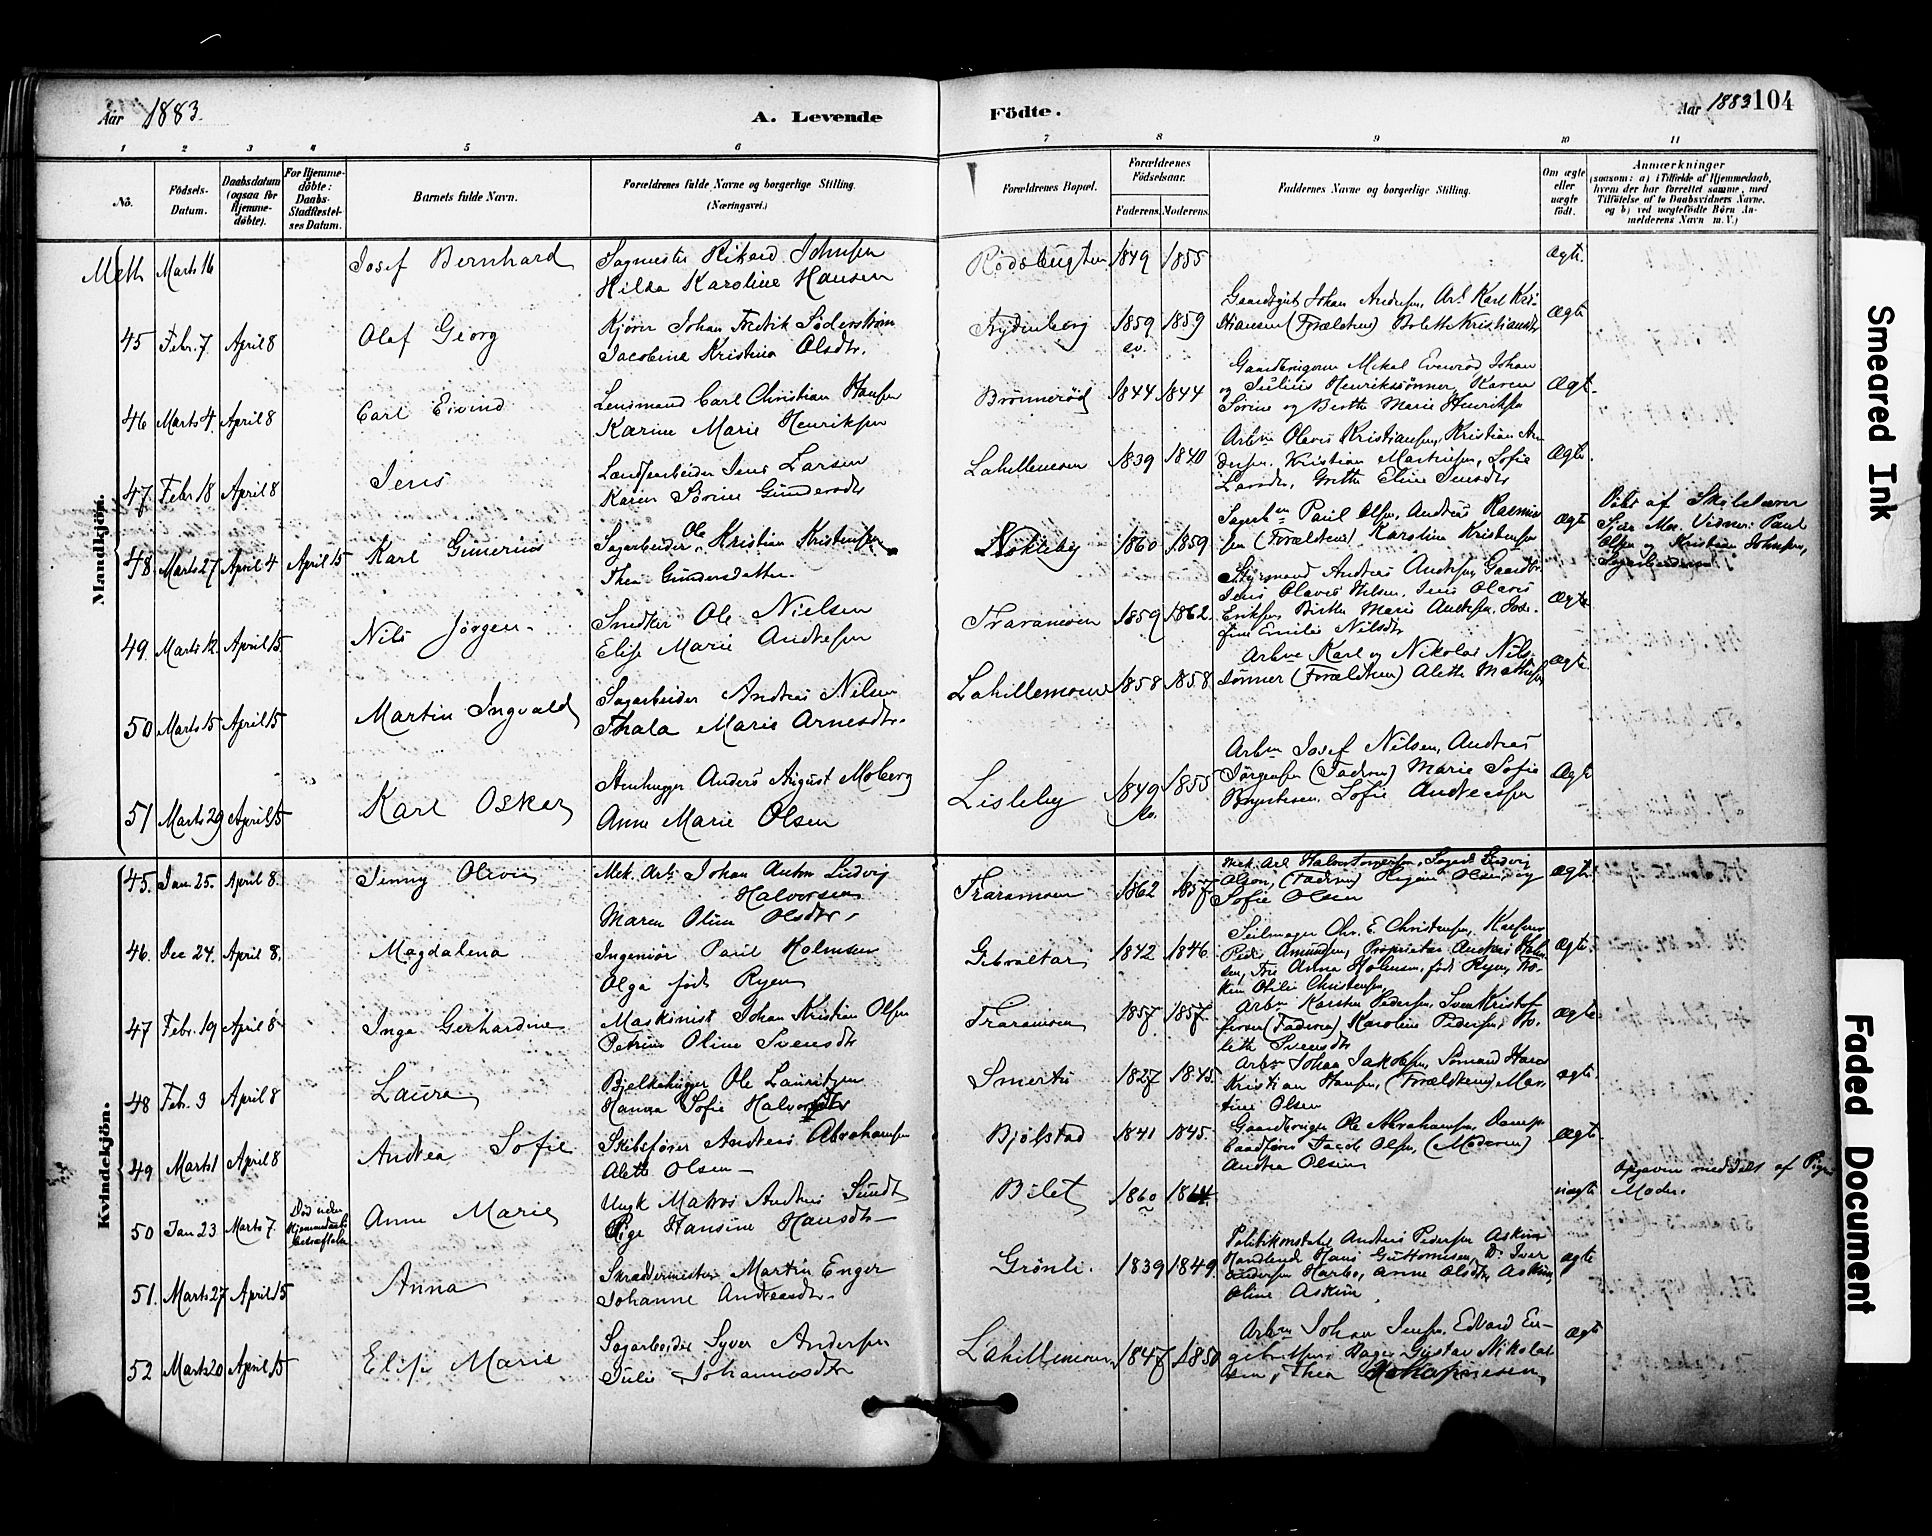 Aar 1883.
A. Levende
Födte.
Aar 1883 104
1 2 3 4 5 6 7 8 9 10 11
No.
Födsels-Datum.
Daabsdatum (ogsaa for Hjemme-döbte).
For Hjemme-döbte: Daabs-Stadfæstel-ses Datum.
Barnets fulde Navn.
Forældrenes fulde Navne og borgerlige Stilling. (Næringsvei.)
Forældrenes Bopæl.
Forældrenes Födselsaar.
Faderens. Moderens.
Faddernes Navne og borgerlige Stilling.
Om ægte eller uægte födt.
Anmærkninger
(saasom: a) i Tilfælde af Hjemmedaab, hvem der har forrettet samme, med Tilföielse af to Daabsvidners Navne, og b) ved uægtefödte Börn Anmelderens Navn m. V.)
Mandkjön.
Marts 16 Josef Bernhard
Sagmester Rikard Johnsen
Hilda Karoline Hansen
1849 1855 Ægte.
45 Febr. 7. April 8 Olaf Georg
Kjörer Johan Fredrik Söderström
Jacobine Kristine Olsdtr.
1859 1859
Gaardbr. Johan Andersen, Arb. Karl Kri-
stiansen (Forældrene) Bolette Kristiansdtr
Ægte
46 Marts 4. April 8 Carl Eivind
Lensmand Carl Christian Hansen
Karine Marie Henriksen
Brönneröd 1844 1844
Gaardbrugerne Mikal Evenröd, Johan
og Julius Henrikssönner, Karen
Sörine og Berthe Marie Henriksen
Ægte
47 Febr. 18 April 8 Jens
Jens Larsen
Karen Sörine Gundersdtr
Lahillemoen 1839 1840
Arbm Olaves Kristiansen, Kristian An-
dersen, Kristian Martinsen, Sofie
Larsdtr, Grethe Eline Jensdtr
Ægte
48 Marts 27 April 4 April 15 Karl Gunerius
Sagarbeider Ole Kristian Kristensen
Thea Gundersdatter
Nokleby 1860 1859
Sagarb. Paul Olsen, Andreas Rasmus-
sen (Forældrene) Karoline Kristensen
Ægte
Döbt af Skolelærer
Vidner: Paul
Olsen og Kristian Johnsen,
Sagarbeidere
49. Marts 12. April 15 Nils Jörgen
Snedker Ole Nielsen
Elise Marie Andresen
Traramoen 1859 1862
Styrmand Andreas Andresen, Gaardbr.
Jens Olaves Nilsen, Jens Olaves
Eriksen, Birthe Marie Andresen, Jose-
fine Emilie Nilsdtr
Ægte
50 Marts 15 April 15 Martin Ingvald
Sagarbeider Andreas Nilsen
Thala Marie Arnesdtr.
Lahillemoen 1858 1858
Arbm Karl og Nikolai Nils-
sönner (Forældrene) Alette
Ægte
51 Marts 29 April 15 Karl Oskar
Stenhugger Anders August Moberg
Anne Marie Olsen
Lisleby 1849 1855
Arbm Josef Nilsen, Andreas
Jörgensen (Faderen) Marie Sofie
Sofie Andreassen
Ægte
Kvindekjön.
45. Jan. 25. April 8. Jenny Olivia
Mek. Arb. Johan Anton Ludvig
Halvorsen
Maren Oline Olsdtr.
Traramoen 1862 1857
Mek. Arb. Sagarb. Ludvig
Olsen, (Faderen) Olsen, og
Sofie Olsen
Ægte
46. Dec 24. April 8. Magdalena
Ingeniör Paul Holmsen
Olga födt Ryen
Gibraltar 1842 1846
Seilmager Chr. E. Christensen,
Peder Amundsen, Proprietær Andreas Holm-
sen, Fru Anna Holmsen, födt Ryen, Frö-
ken Otilie Christensen,
Ægte
47 Febr. 19 April 8 Inga Gerhardine
Maskinist Johan Kristian Olsen
Petrine Oline Svensdtr
Traramoen 1857 1857
Arbm Karsten Pedersen, Sven Kristof-
fersen (Faderen) Karoline Pedersen, Bo-
lette Svensdtr
Ægte
48 Feb. 3 April 8 Laura
Bjelkehugger Ole Lauritzen
Hanna Sofie Halvorsdtr
Smertu 1827 1845.
Arbm Johan Jakobsen, Sömand Hans
Kristian Hansen, (Forældrene) Mar-
tine Olsen
ægte.
49 Marts 1 April 8 Andrea Sofie
Skibsförer Andreas Abrahamsen
Alette Olsen
Bjölstad 1841 1845.
Gaardbruger Ole Abrahamsen, Damp-
baadförer Jacob Olsen, (Moderen)
Andrea Olsen
Ægte
50 Jan 23 Marts 7. Anne Marie
Ungk Matros Andreas Sundt
Pige Hansine Hansdtr
Bilet 1860 1864
uægte
Opgaven meddelt af Pigens
Moder.
51. Marts 27 April 15 Anna
Skræddermester Martin Enger
Johanne Andreasdtr.
Grönli. 1839 1849
Politikonstabel Anders Pedersen Askim
Handlende Hans Guttormsen, Do Iver
Andersen Harbo, Anne Olsdtr Askim,
Oline Askim
ægte
52 Marts 20 April 15 Elise Marie
Sagarbeider Syver Andersen
Julie Johannesdtr
Lahillemoen 1847 1850
Arbm Johan Jensen, Edvard En-
gebretsen, Bager Gustav Nikolai-
sen, Thea
Ægte
Smeared Ink
Faded Document